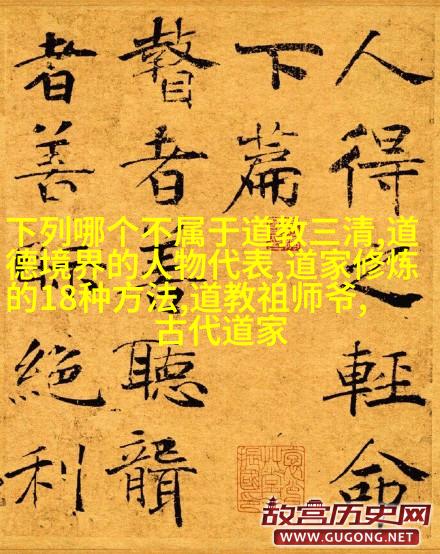 人得之輕命
下篇
瞽者善聽聾
者善視絕利
下列哪个不属于道教三清,道
德境界的人物代表,道家修炼
的18种方法,道教祖师爷,
古代道家
故宫历史网
WWW.GUGONG.NET